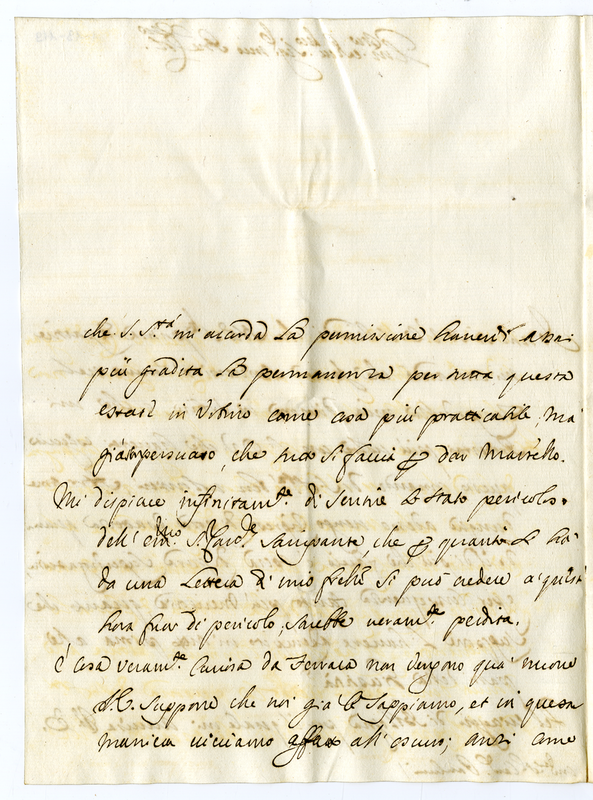 che S. S.tà mi acorda la permissione haverei assai
più gradita la permanenza per tutta questa
estate in Urbino come cosa più pratticabile, ma
già impersuaso, che tutto si faccia p dar Martello.
Mi dispiace infinitam.te di sentire lo stato pericolo.
dell' emo Sig.r Card.le Sacripante, che p quanto ho
da una lettera di mio frello si può credere a quest'
hora fuor di pericolo, sarebbe veram.te perdita.
È cosa veram.te curiosa da Ferrara non vengono quà nuove
Suppone che noi già le sappiamo, et in questa
maniera viviamo affatto all' oscuro; anzi come